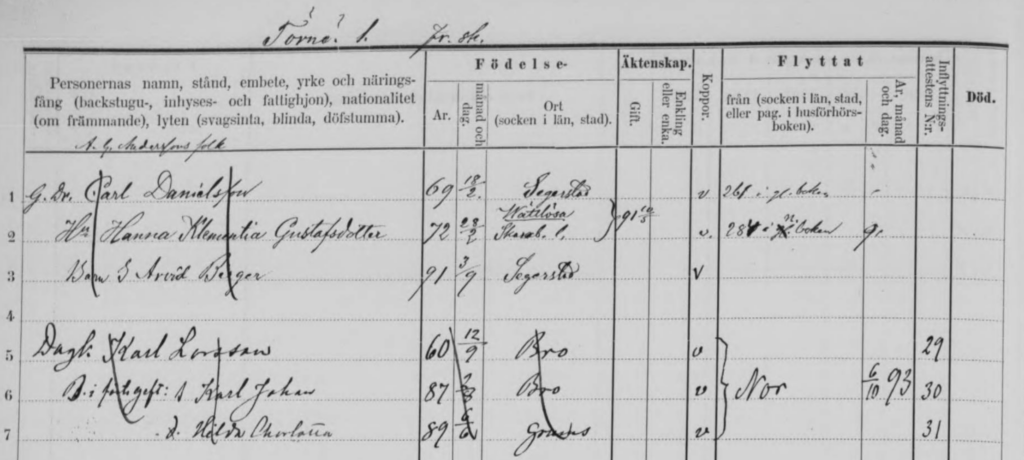 Torne. 1. Fr. sk.
Personernas namn, stånd, embete, yrke och närings-
fång (backstugu-, inhyses- och fattighjon), nationalitet
(om främmande), lyten (svagsinta, blinda, döfstumma).
A. G. Anderssons folk
Födelse-
År.
månad och dag.
Ort
(socken i län, stad).
Äktenskap.
Gift.
Enkling eller enka.
Koppor.
Flyttat
från (socken i län, stad,
eller pag. i husförhörs-
boken).
År, månad och dag.
Inflyttnings-attestens N:r.
Död.
1 G. Dr. Carl Danielsson 69 18/2 Segerstad v 261 i boken
2 Hu Hanna Klementia Gustafsdotter 72 23/2 Skarab. l. 91 v. 281 i n. boken 91
3 Barn S Arvid Berger 91 3/9 Segerstad v
4
5 Dagk. Karl Larsson 60 12/9 Bro v 29
6 B. i förb. gift: s Karl Johan 87 Bro v Nor 6/10 93 30
7 d. Hilda Charlotta 89 v 31